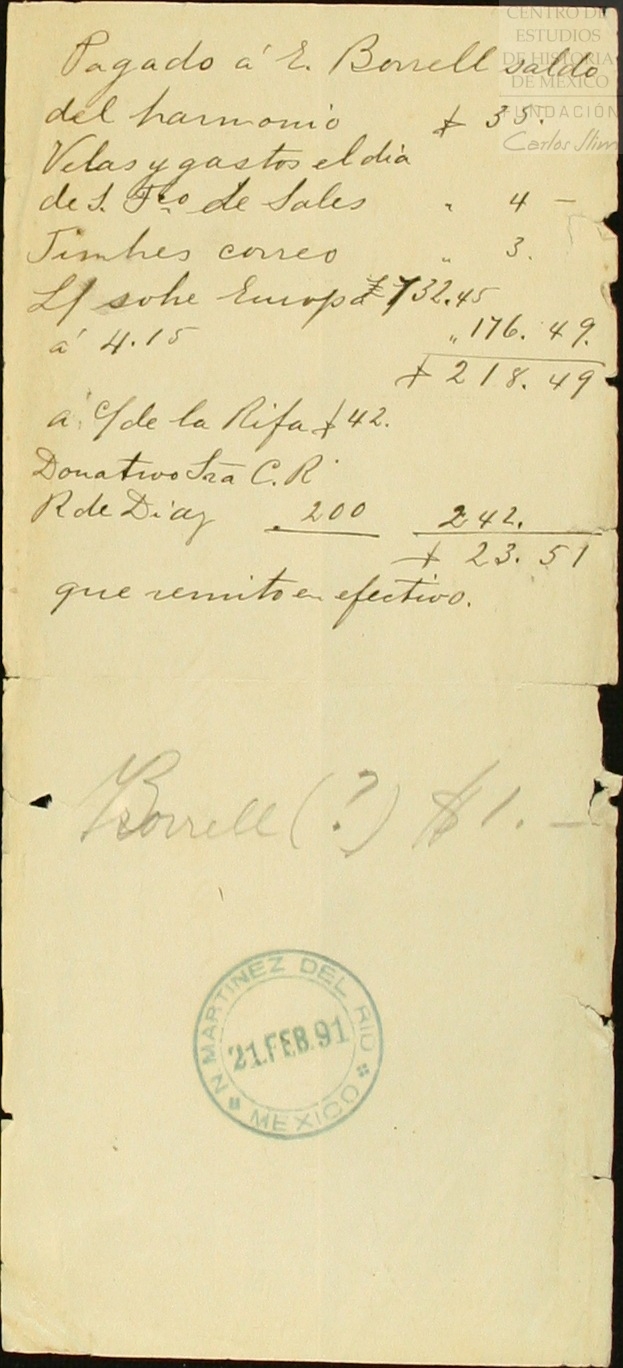 CENTRO DE
ESTUDIOS
DE HISTORIA
DE MEXICO
FUNDACIÓN
Carlos Slim
Pagado á E. Borrell saldo
del harmonio $ 35.
Velas y gastos el día
de S. Fco de Sales " 4 —
Timbres correo " 3.
L/ sobre Europa 732.45
á 4.15 " 176.49.
$ 218.49
á c/ de la Rifa $ 42.
Donativo Sra C. R.
R de Diaz 200 242.
$ 23.51
que remito en efectivo.
Borrell (?) $ 1. —
N MARTINEZ DEL RIO
21.FEB.91
MEXICO